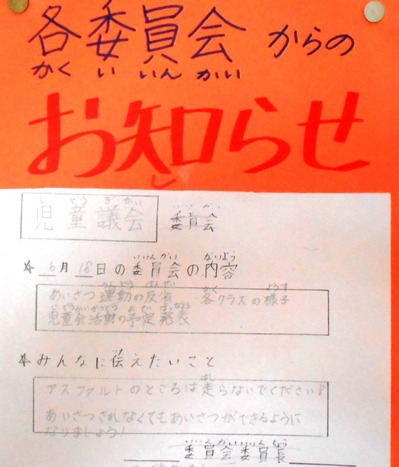 各委員会からの
かくいいんかい
お知らせ
じどうぎかい いいんかい
児童議会 委員会
いいんかい ないよう
☆6月18日の委員会の内容
うんどう はんせい かく ようす
あいさつ運動の反省 各クラスの様子
じどうかいかつどう よていはっぴょう
児童会活動の予定発表
☆みんなに伝えたいこと
はし
アスファルトのところは走らないでください!
あいさつされなくてもあいさつができるように
なりましょう!
いいんかいいいんちょう
委員会委員長